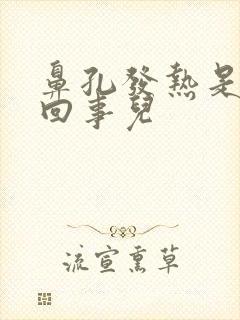 鼻孔發熱是
回事兒
流宣熏草